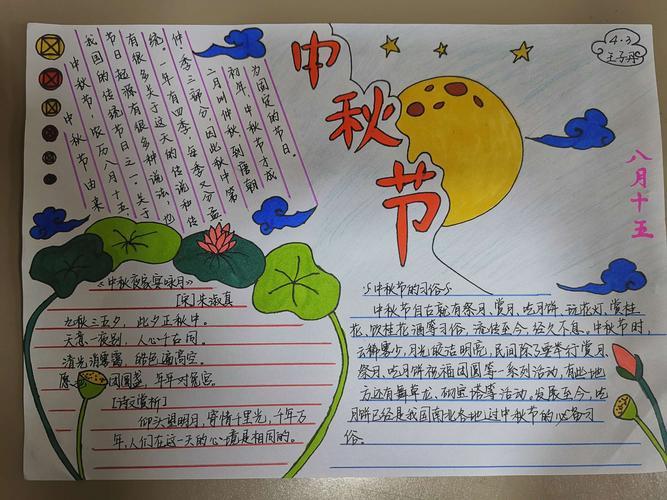 中秋节
4.3
八月十五
中秋节由来
中秋节,农历八月十五,
我国的传统节日之一。关于
节日起源有很多种说法,也
有很多关于这天的传说和传
统。一年有四季,每季又分孟
仲季三部分,因此秋中第
二月叫仲秋,到唐朝
初年,中秋节才成
为固定的节日。
《中秋夜家宴咏月》
[宋]朱淑真
九秋三五夕,此夕正秋中。
天意一夜别,人心千古同。
清光消雾霭,皓色遍高空。
愿 团圆盏,年年对兔宫。
[诗文赏析]
仰头望明月,寄情千里光,千年万
年,人们在这一天的心境是相同的。
中秋节的习俗
中秋节自古就有祭月、赏月、吃月饼、玩花灯、赏桂
花、饮桂花酒等习俗,流传至今,经久不息,中秋节时,
云稀雾少,月光皎洁明亮,民间除了要举行赏月、
祭月、吃月饼祝福团圆等一系列活动,有些地
方还有舞草龙、砌宝塔等活动,发展至今,吃
月饼已经是我国南北各地过中秋节的必备习
俗。